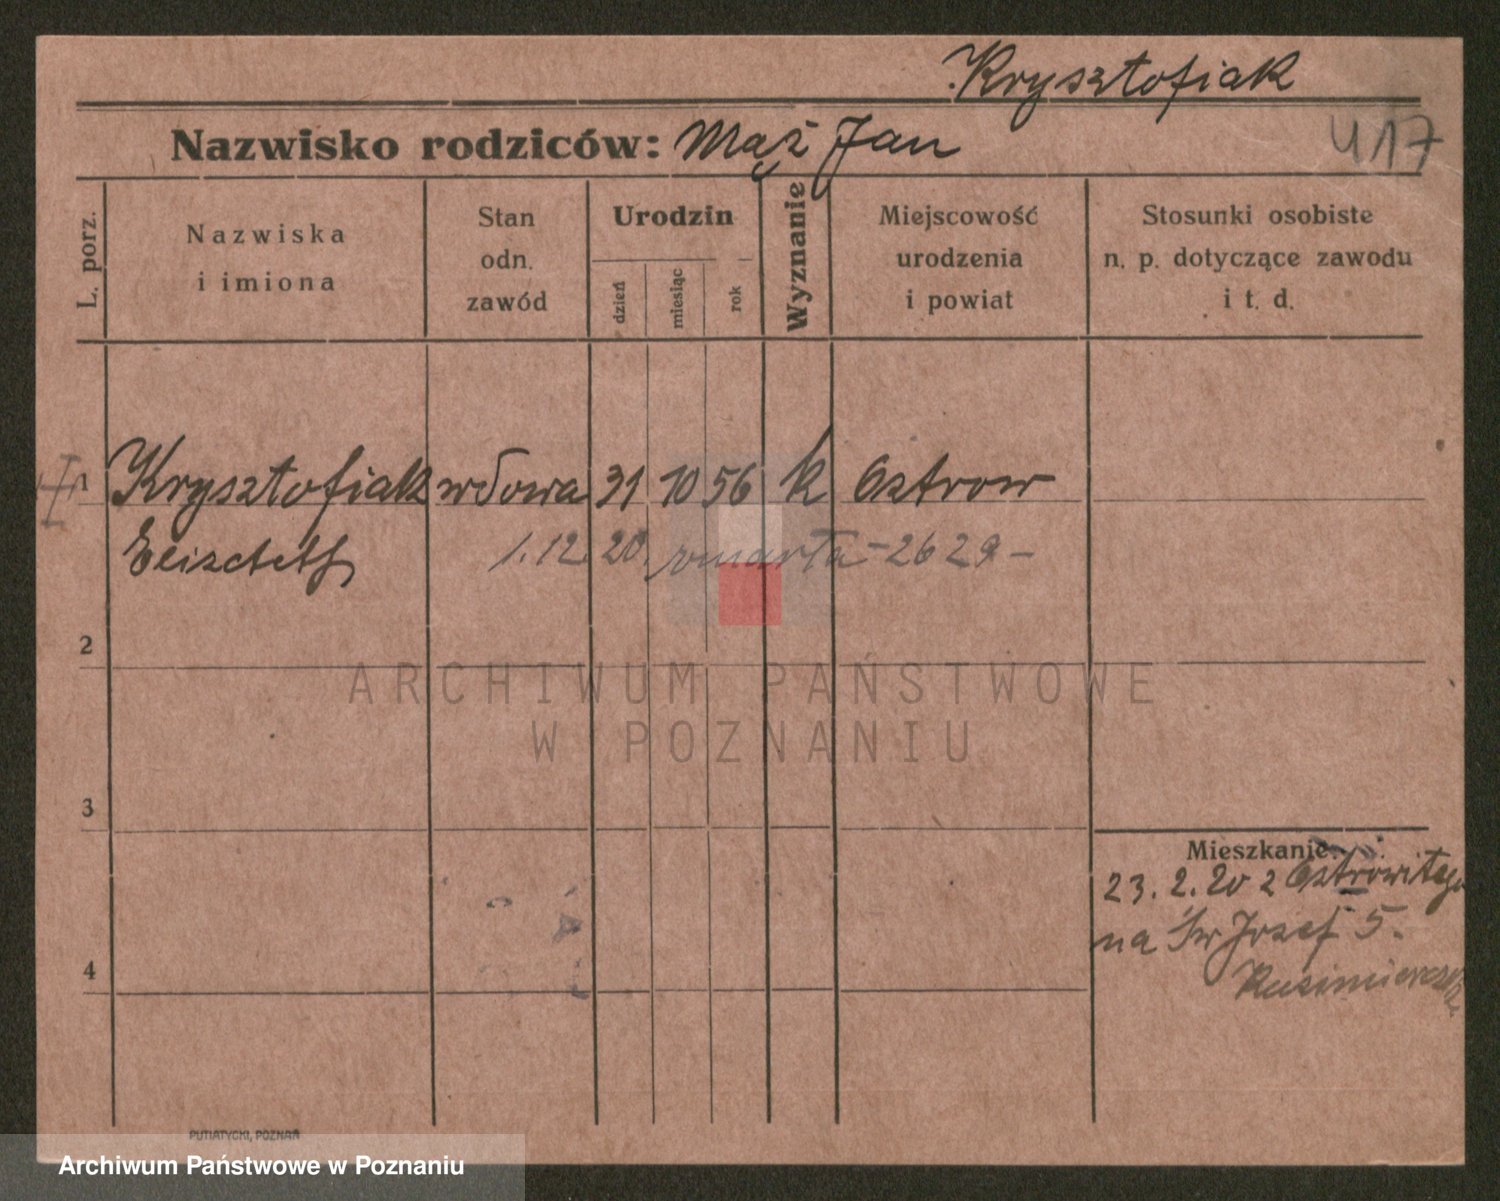 Krysztofiak
Nazwisko rodziców: Mąż Jan
U 17
L. porz.
Nazwiska
i imiona
Stan
odn.
zawód
Urodzin
dzień
miesiąc
rok
Wyznanie
Miejscowość
urodzenia
i powiat
Stosunki osobiste
n. p. dotyczące zawodu
i t. d.
1 Krysztofiak wdowa 31 10 56 k Ostrow
1.12.20. zmarła - 26 29 -
2
3
4
Mieszkanie.
23. 2. 20 z
na Św Jozef 5.
PUTIATYCKI, POZNAŃ
ARCHIWUM PAŃSTWOWE
W POZNANIU
Archiwum Państwowe w Poznaniu